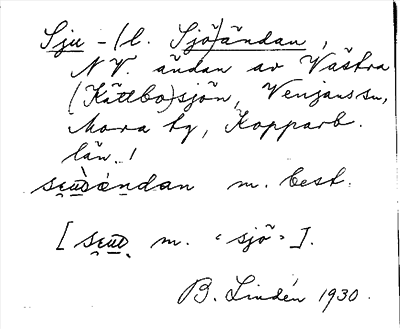 Sju - (l. Sjö)ändan,
NV. ändan av Västra
(Kättbo)sjön, Venjans sn,
Mora tg, Kopparb.
län. !
m. best.
[ m. "sjö" ].
B. Lindén 1930.